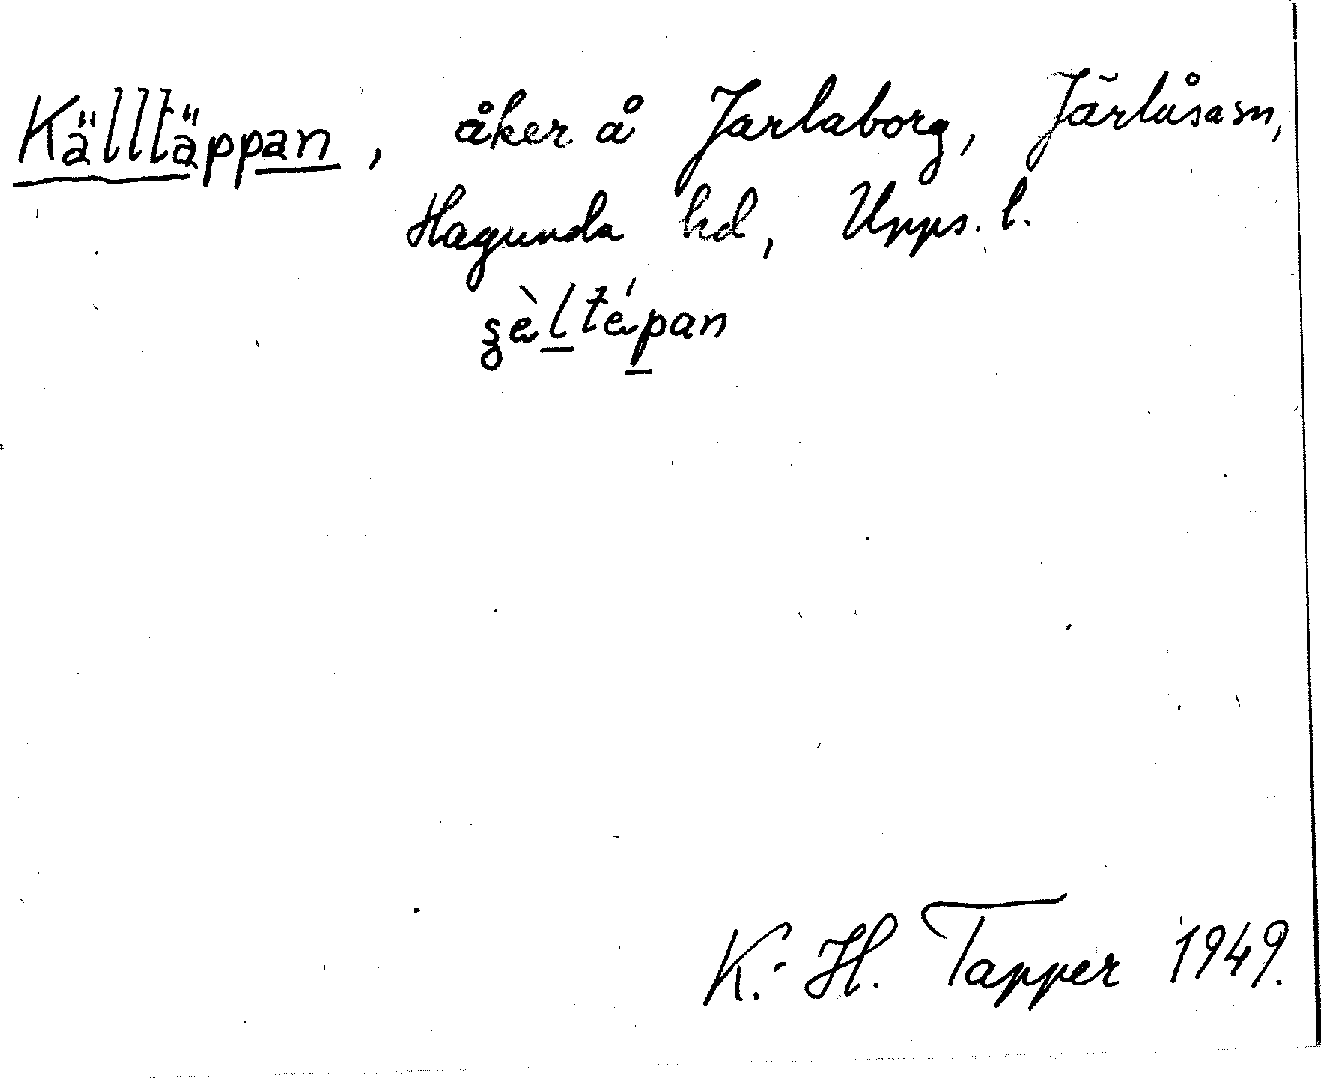 Källtäppan, åker å Jarlaborg, Järlåsa sn,
Hagunda hd, Upps. l.
ʂὲltépan
K.-H. Tapper 1949.